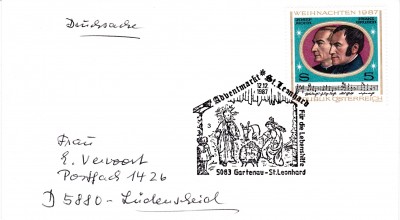 Drucksache
WEIHNACHTEN 1987
S 5
REPUBLIK ÖSTERREICH
2. Adventmarkt * St. Leonhard
12.12.
1987
Für die Lebenshilfe
5083 Gartenau-St.Leonhard
Frau
E. Vervoort
Postfach 1426
D 5880-Lüdenscheid